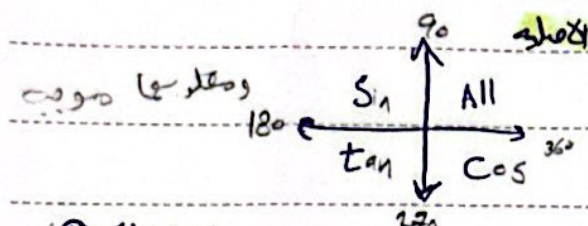 90
ملاحظة
ومقلوبها موجب
Sin All
180 360
tan Cos
270